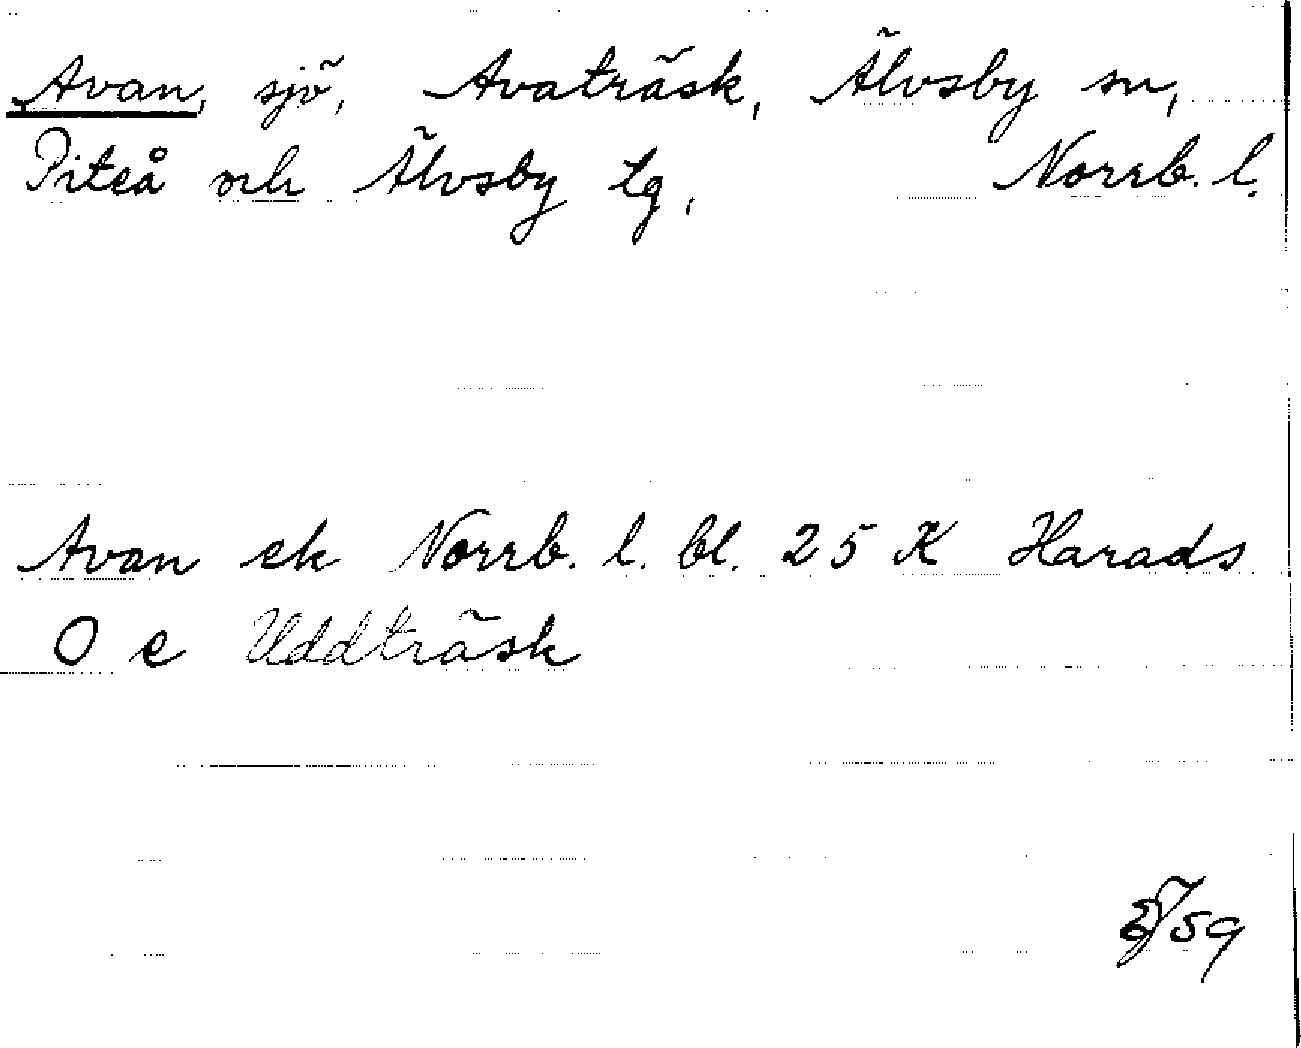 Avan, sjö, Avaträsk, Älvsby sn,
Piteå och Älvsby tg, Norrb. l.
Avan ek Norrb. l. bl. 25 K Harads
O e Uddträsk
/59